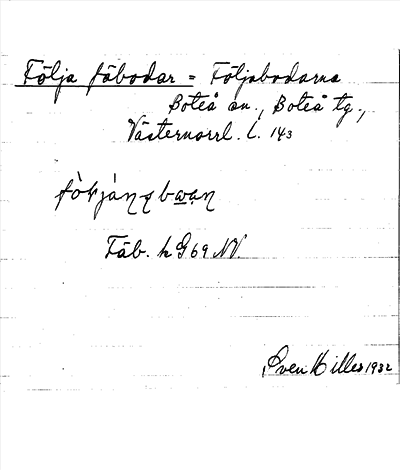 Följa fäbodar = Följabodarna
Boteå sn., Boteå tg.,
Västernorrl. l. 143
Fäb. h G69 NV.
Sven Hilles 1932